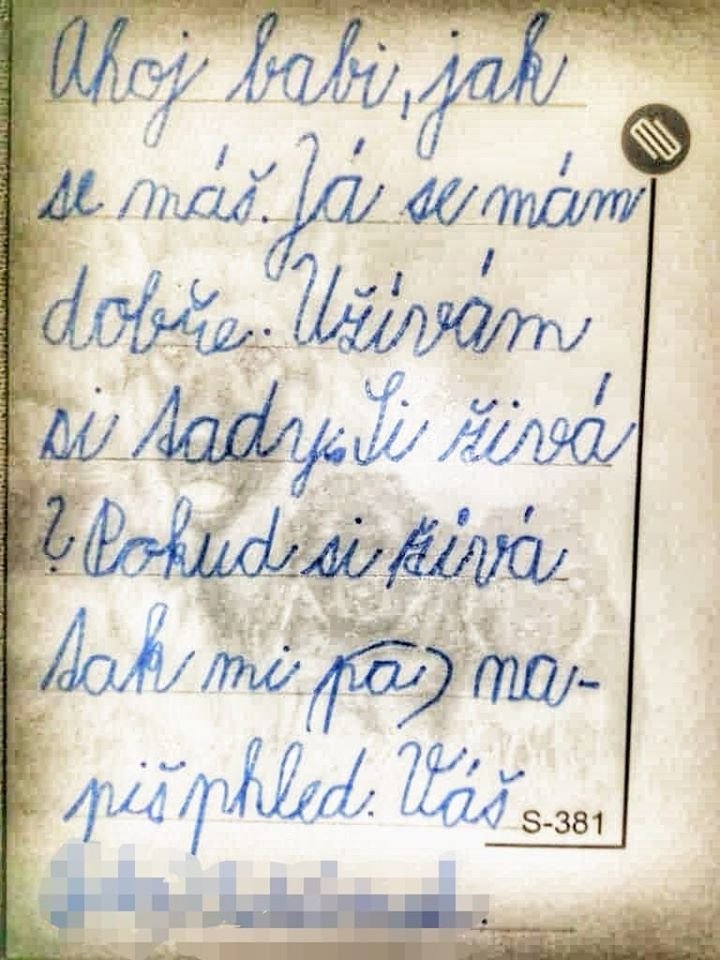 Ahoj babi, jak
se máš. Já se mám
dobře. Užívám
si tady. Si živá
? Pokud si živá
tak mi (pa) na-
piš phled. Váš
S-381